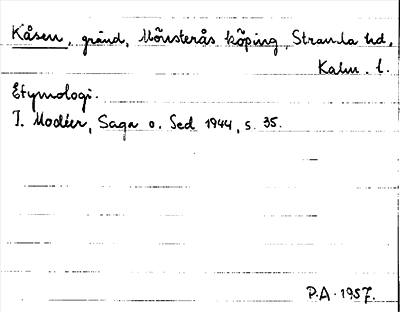 Kåsen, gränd, Mönsterås köping, Stranda hd,
Kalm. l.
Etymologi.
I. Modéer, Saga o. Sed 1944, s. 35.
P.A. 1957.